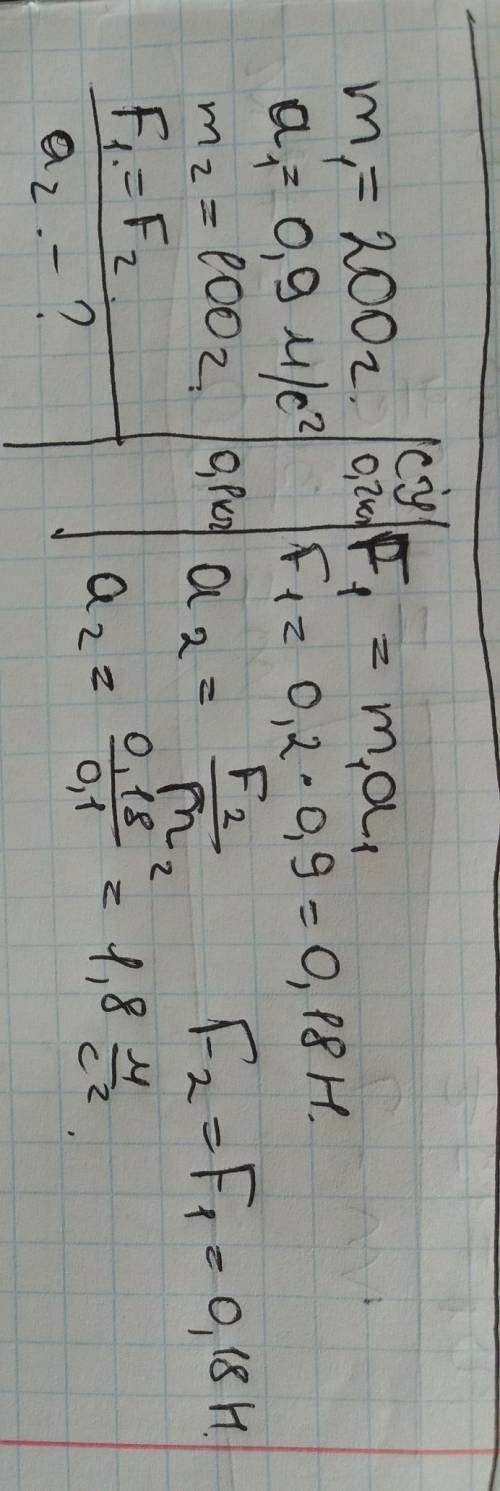 m₁ = 200г.
a₁ = 0,9 м/с²
m₂ = 100г.
F₁ = F₂.
a₂ - ?
СИ
0,2кг
0,1кг
F₁ = m₁a₁
F₁ = 0,2 · 0,9 = 0,18 Н.
a₂ = F₂/m₂ F₂ = F₁ = 0,18 Н.
a₂ = 0,18/0,1 = 1,8 м/с².